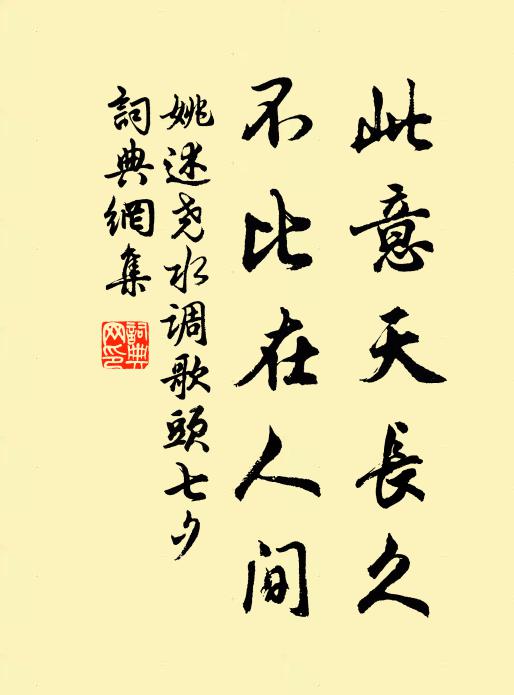 此意天長久
不比在人间
姚述尧水调歌頭七夕
詞典網集
詞典網印